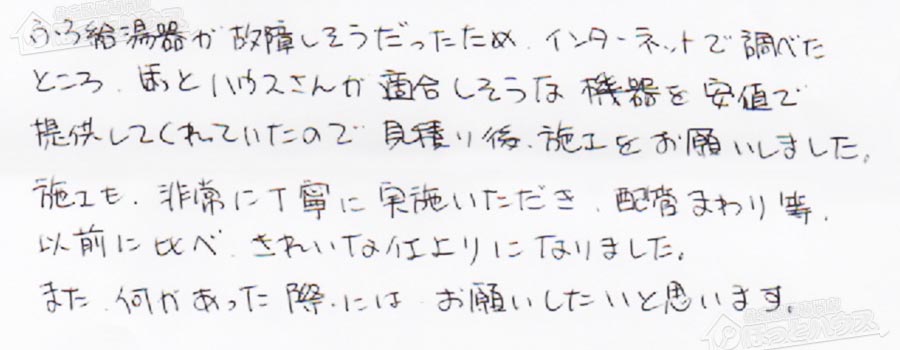 ふろ給湯器が故障しそうだったため、インターネットで調べた
ところ、ほっとハウスさんが適合しそうな機器を安値で
提供してくれていたので見積り後、施工をお願いしました。
施工も、非常に丁寧に実施いただき、配管まわり等、
以前に比べ、きれいな仕上りになりました。
また、何かあった際には、お願いしたいと思います。
ほっとハウス